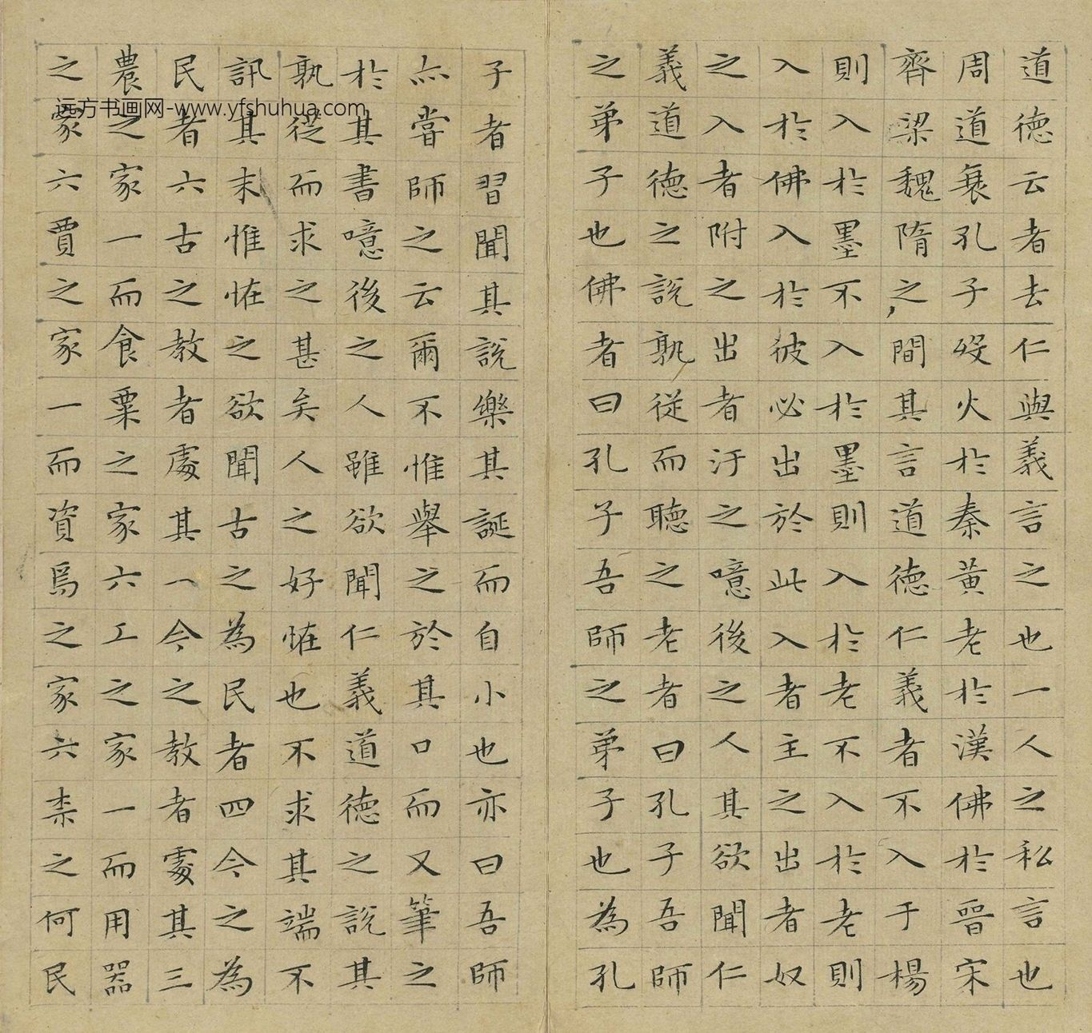 道德云者去仁與義言之也一人之私言也
周道衰孔子歿火於秦黃老於漢佛於晉宋
齊梁魏隋之間其言道德仁義者不入于楊
則入於墨不入於墨則入於老不入於老則
入於佛入於彼必出於此入者主之出者奴
之入者附之出者汙之噫後之人其欲聞仁
義道德之說孰從而聽之老者曰孔子吾師
之弟子也佛者曰孔子吾師之弟子也為孔
子者習聞其說樂其誕而自小也亦曰吾師
亦嘗師之云爾不惟舉之於其口而又筆之
於其書噫後之人雖欲聞仁義道德之說其
孰從而求之甚矣人之好恠也不求其端不
訊其末惟恠之欲聞古之為民者四今之為
民者六古之教者處其一今之教者處其三
農之家一而食粟之家六工之家一而用器
之家六賈之家一而資焉之家六柰之何民
远方书画网-www.yfshuhua.com